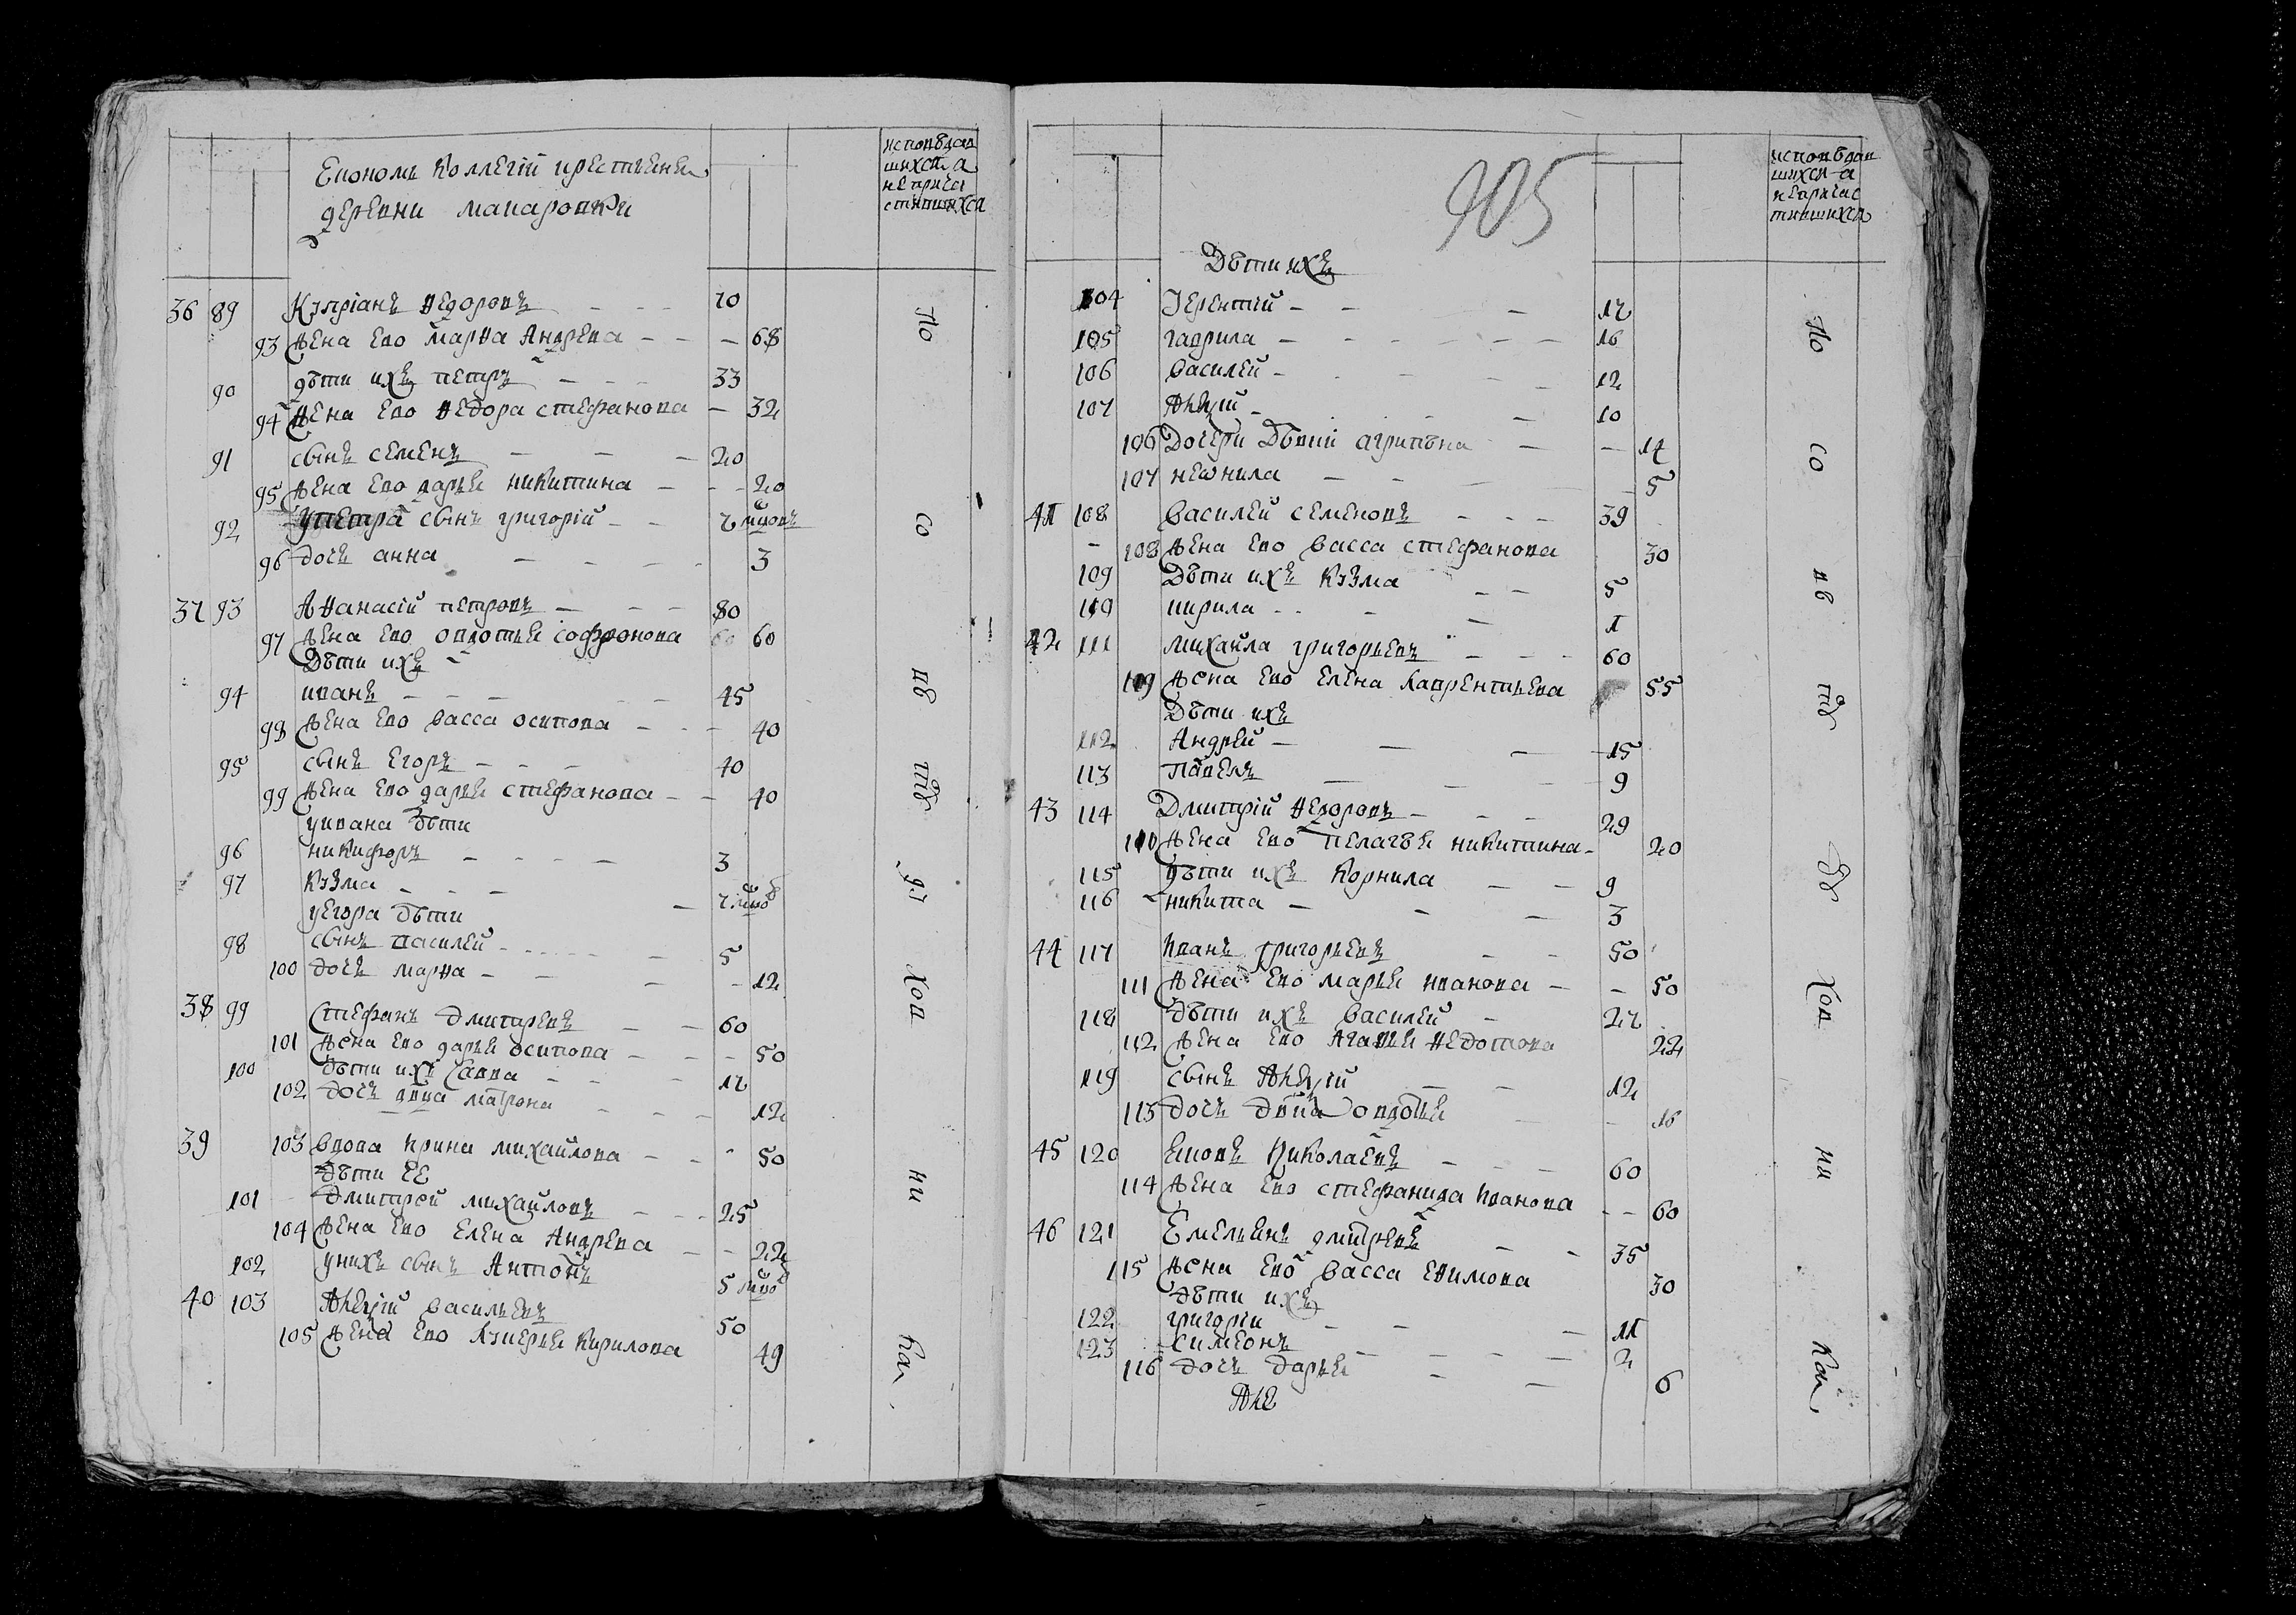 Економъ Коллегій крестьяне
деревни макаровки
исповѣдав
шихся а
неприча
стившихся
36 89 Купріанъ Ѳедоровъ 70
93 жена ево марѳа Андреева 68
90 дѣти ихъ петръ 33
94 жена ево Ѳедора стефанова 32
91 сынъ семенъ 20
95 жена ево дарья никитина 20
92 упетра сынъ григорій 7 мцовъ
96 дочь анна 3
37 93 Аѳанасій петровъ 80
97 жена ево овдотья софронова 60
Дѣти ихъ
94 иванъ 45
98 жена ево васса осипова 40
95 сынъ Егоръ 40
99 жена ево дарья стефанова 40
уивана дѣти
96 никифоръ 3
97 Кузма 7 мцов
уегора дѣти
98 сынъ василей 5
100 дочь марѳа 12
38 99 Стефанъ Дмитревъ 60
101 жена ево дарья осипова 50
100 дѣти ихъ Савва 17
102 дочь двца матрона 12
39 103 вдова Ирина михайлова 50
дѣти ее
101 Дмитрей михайловъ 25
104 жена ево Елена Андреева 22
102 унихъ сынъ Антонъ 5 мцов
40 103 Алеѯій васильевъ 50
105 жена ево Лукерья Кирилова 49
По
со
пв
тѣ
др
ход
ни
ка
905
исповѣдав
шихся а
непричас
тившихся
Дѣти ихъ
104 Терентій 17
105 гаврила 16
106 василей 12
107 Алеѯій 10
106 Дочери Дѣвки агрипѣна 14
107 неѡнила 5
41 108 василей семеновъ 39
108 жена ево васса стефанова 30
109 Дѣти ихъ Кузма 5
110 кирила 1
42 111 михаила григорьевъ 60
109 жена ево Елена Лаврентьева 55
Дѣти ихъ
112 Андрей 15
113 Павелъ 9
43 114 Дмитрій Ѳедоровъ 29
110 жена ево пелагѣя никитина 20
115 дѣти ихъ Корнила 9
116 никита 3
44 117 Иванъ григорьевъ 50
111 жена ево марья иванова 50
118 дѣти ихъ василей 27
112 жена ево Агаѳья Ѳедотова 22
119 сынъ Алеѯій 12
113 дочь двца овдотья 16
45 120 Николаевъ 60
114 жена ево стефанида Иванова 60
46 121 Емельянъ дмитревъ 35
115 жена ево васса Еѳимова 30
дѣти ихъ
122 григорій 11
123 симеонъ 2
116 дочь дарья 6
Але
По
со
пв
тѣ
ход
ни
ка